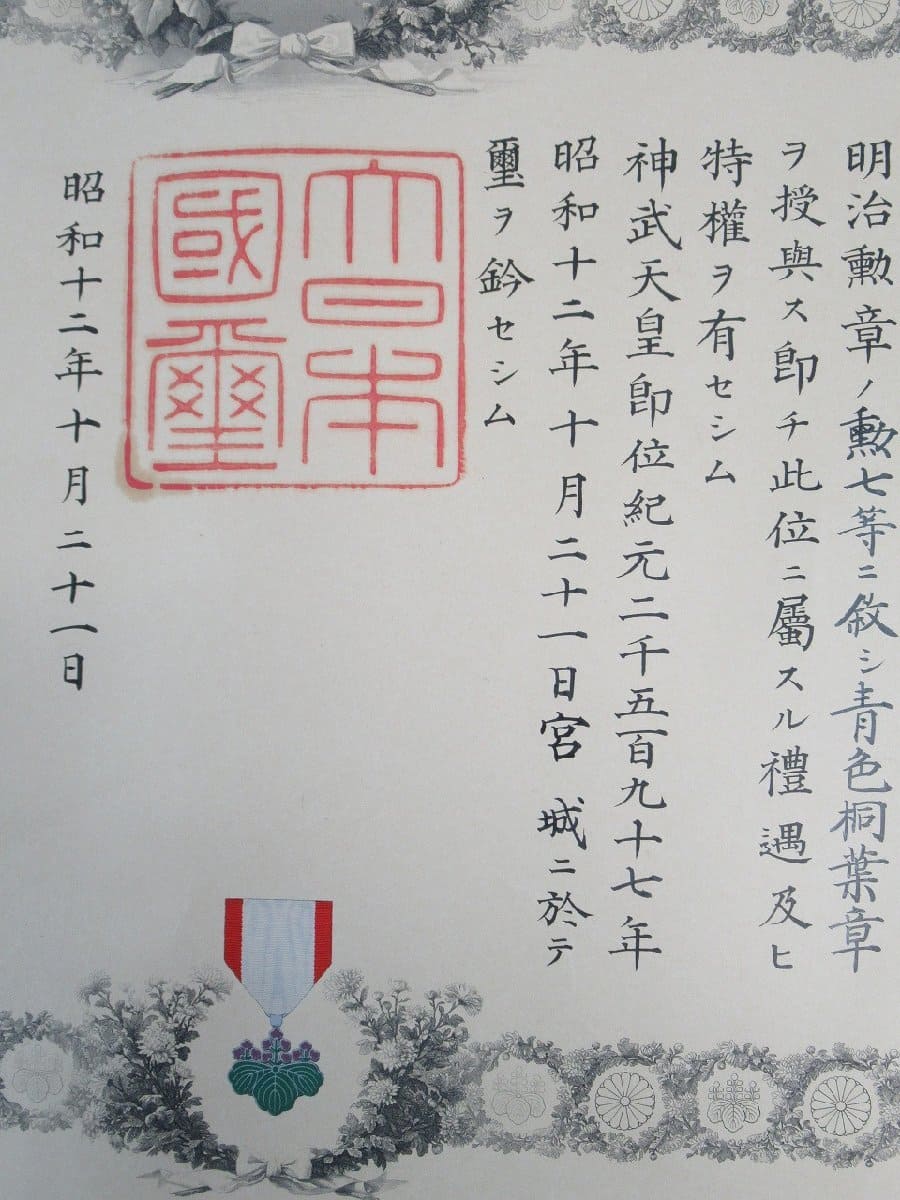 明治勲章ノ勲七等ニ敘シ青色桐葉章
ヲ授與ス卽チ此位ニ屬スル禮遇及ヒ
特權ヲ有セシム
神武天皇卽位紀元二千五百九十七年
昭和十二年十月二十一日宮城ニ於テ
璽ヲ鈐セシム
大日本
國璽
昭和十二年十月二十一日